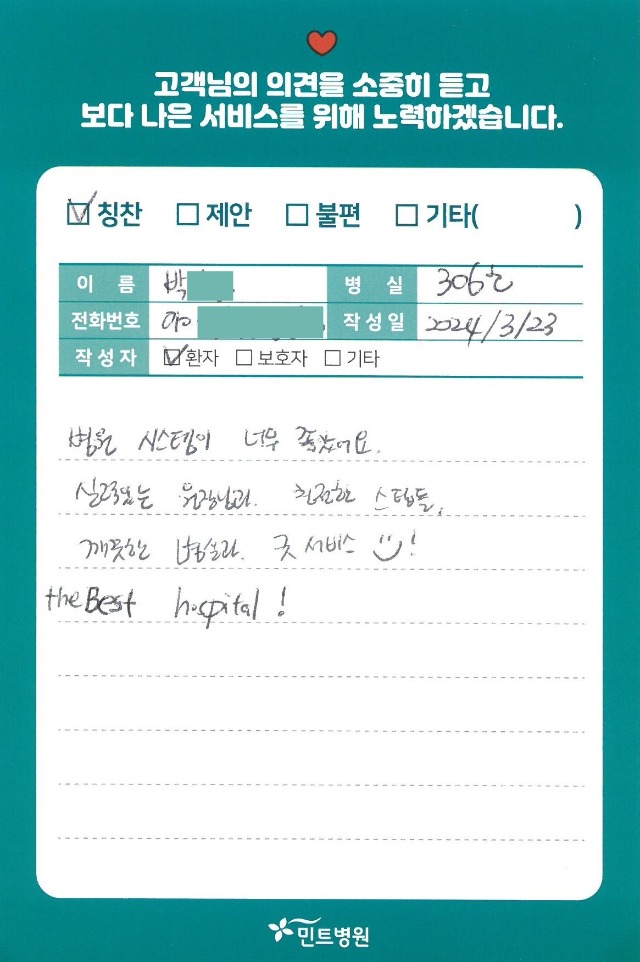 고객님의 의견을 소중히 듣고
보다 나은 서비스를 위해 노력하겠습니다.
칭찬 제안 불편 기타( )
이 름 박 병 실 306호
전화번호 010 작성일 2024/3/23
작성자 환자 보호자 기타
병원 시스템이 너무 좋았어요.
실력있는 원장님과. 친절한 스텝들,
깨끗한 병실과. 굿 서비스 !
the Best hospital !
민트병원